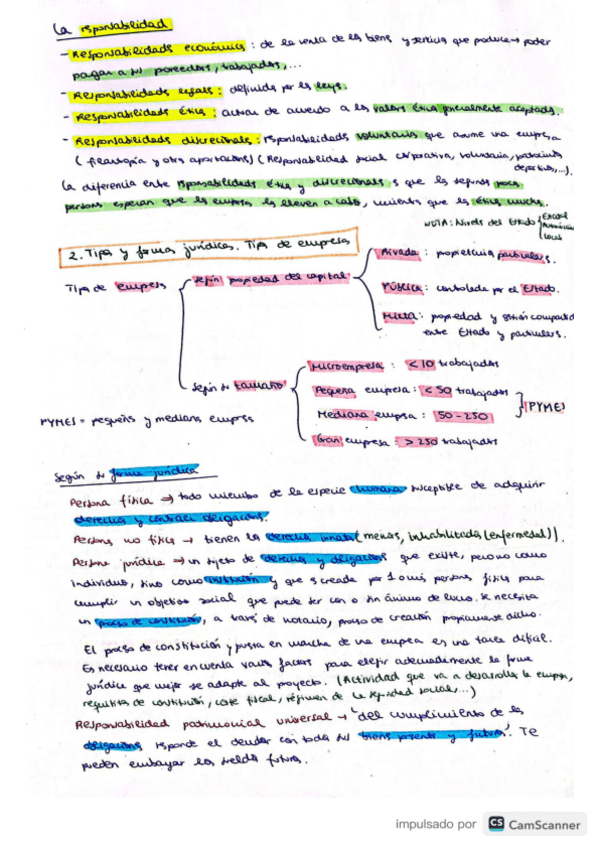 La responsabilidad
- Responsabilidades económicas : de la venta de los bienes y servicios que produce → poder
pagar a sus proveedores, trabajadores, ...
- Responsabilidades legales : definidas por las leyes.
- Responsabilidades éticas : actuar de acuerdo a los valores éticos generalmente aceptados.
- Responsabilidades discrecionales : responsabilidades voluntarias que asume una empresa
( filantropía y otras aportaciones) ( Responsabilidad social corporativa, voluntarias, patrocinios
deportivos,...).
La diferencia entre responsabilidades éticas y discrecionales es que las segundas pocas
personas esperan que las empresas las lleven a cabo, mientras que las éticas muchas.
NOTA: Niveles del Estado { Estatal
Autonómico
Local
2. Tipos y formas jurídicas. Tipos de empresas
Tipos de empresas
Según propiedad del capital
Privada : propietarios particulares.
Pública : controlada por el Estado.
Mixta : propiedad y gestión compartida
entre Estado y particulares.
Según su tamaño
Microempresa : < 10 trabajadores
Pequeña empresa : < 50 trabajadores
Mediana empresa : 50 - 250
} PYMES
Gran empresa : > 250 trabajadores
PYMES = pequeñas y medianas empresas
Según su forma jurídica
Persona física → todo miembro de la especie humana susceptible de adquirir
derechos y contraer obligaciones.
Personas no físicas → tienen los derechos innatos ( menores, inhabilitados (enfermedad)).
Persona jurídica → un sujeto de derechos y obligaciones que existe, pero no como
individuo, sino como institución y que es creada por 1 o más personas físicas para
cumplir un objetivo social que puede ser con o sin ánimo de lucro. Se necesita
un proceso de constitución, a través de notario, proceso de creación propiamente dicho.
El proceso de constitución y puesta en marcha de una empresa es una tarea difícil.
Es necesario tener en cuenta varios factores para elegir adecuadamente la forma
jurídica que mejor se adapte al proyecto. (Actividad que va a desarrollar la empresa,
requisitos de constitución, coste fiscal, régimen de la seguridad social,...)
Responsabilidad patrimonial universal → "del cumplimiento de las
obligaciones responde el deudor con todos sus bienes presentes y futuros". Te
pueden embargar los sueldos futuros.
impulsado por CS CamScanner